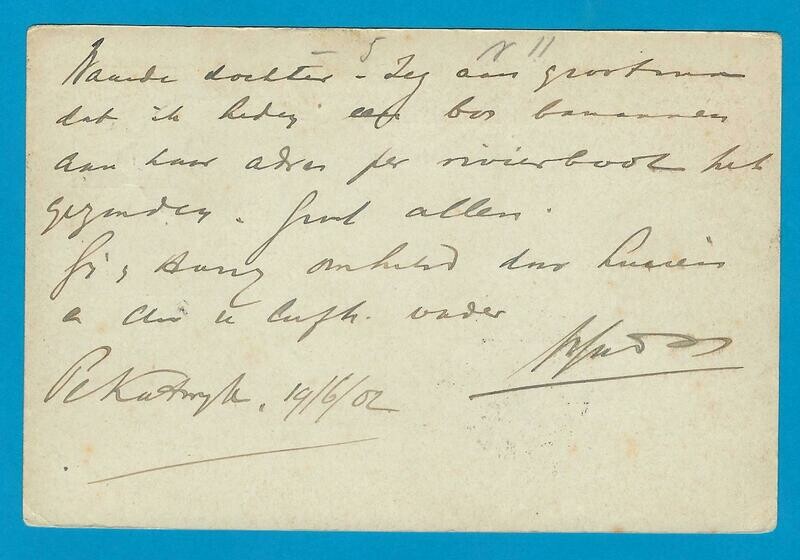 5 N 11
Waarde dochter - Zeg aan grootmama
dat ik heden een bos bananen
aan haar adres per rivierboot heb
gezonden. Groet allen.
Gij & Harry omhelsd door Lucien
a u liefh. vader
Katwyk, 19/6/02